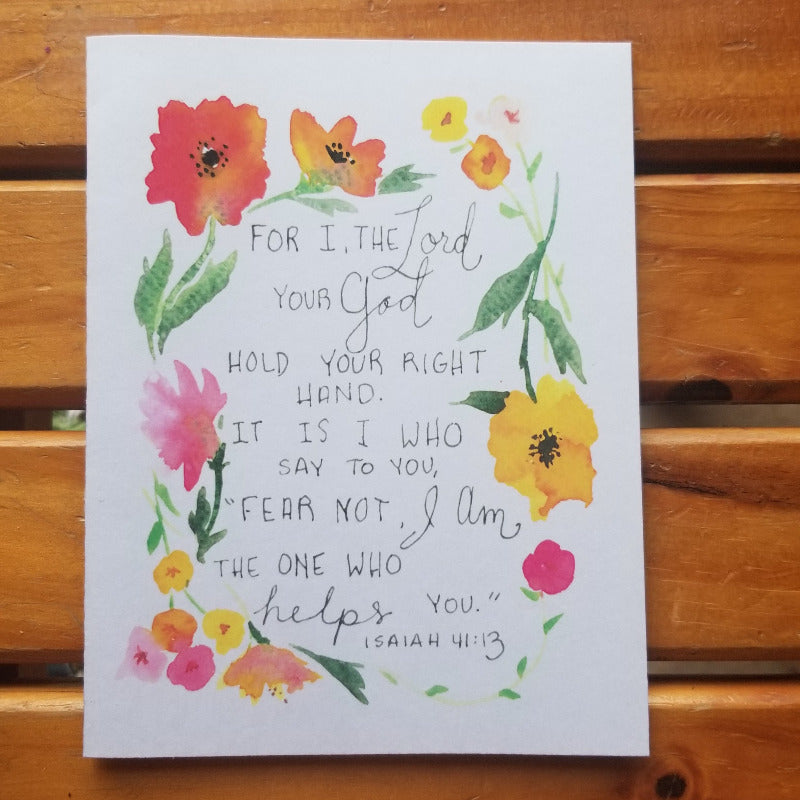 FOR I, THE Lord
YOUR God
HOLD YOUR RIGHT
HAND.
IT IS I WHO
SAY TO YOU,
"FEAR NOT, I Am
THE ONE WHO
helps YOU."
ISAIAH 41:13